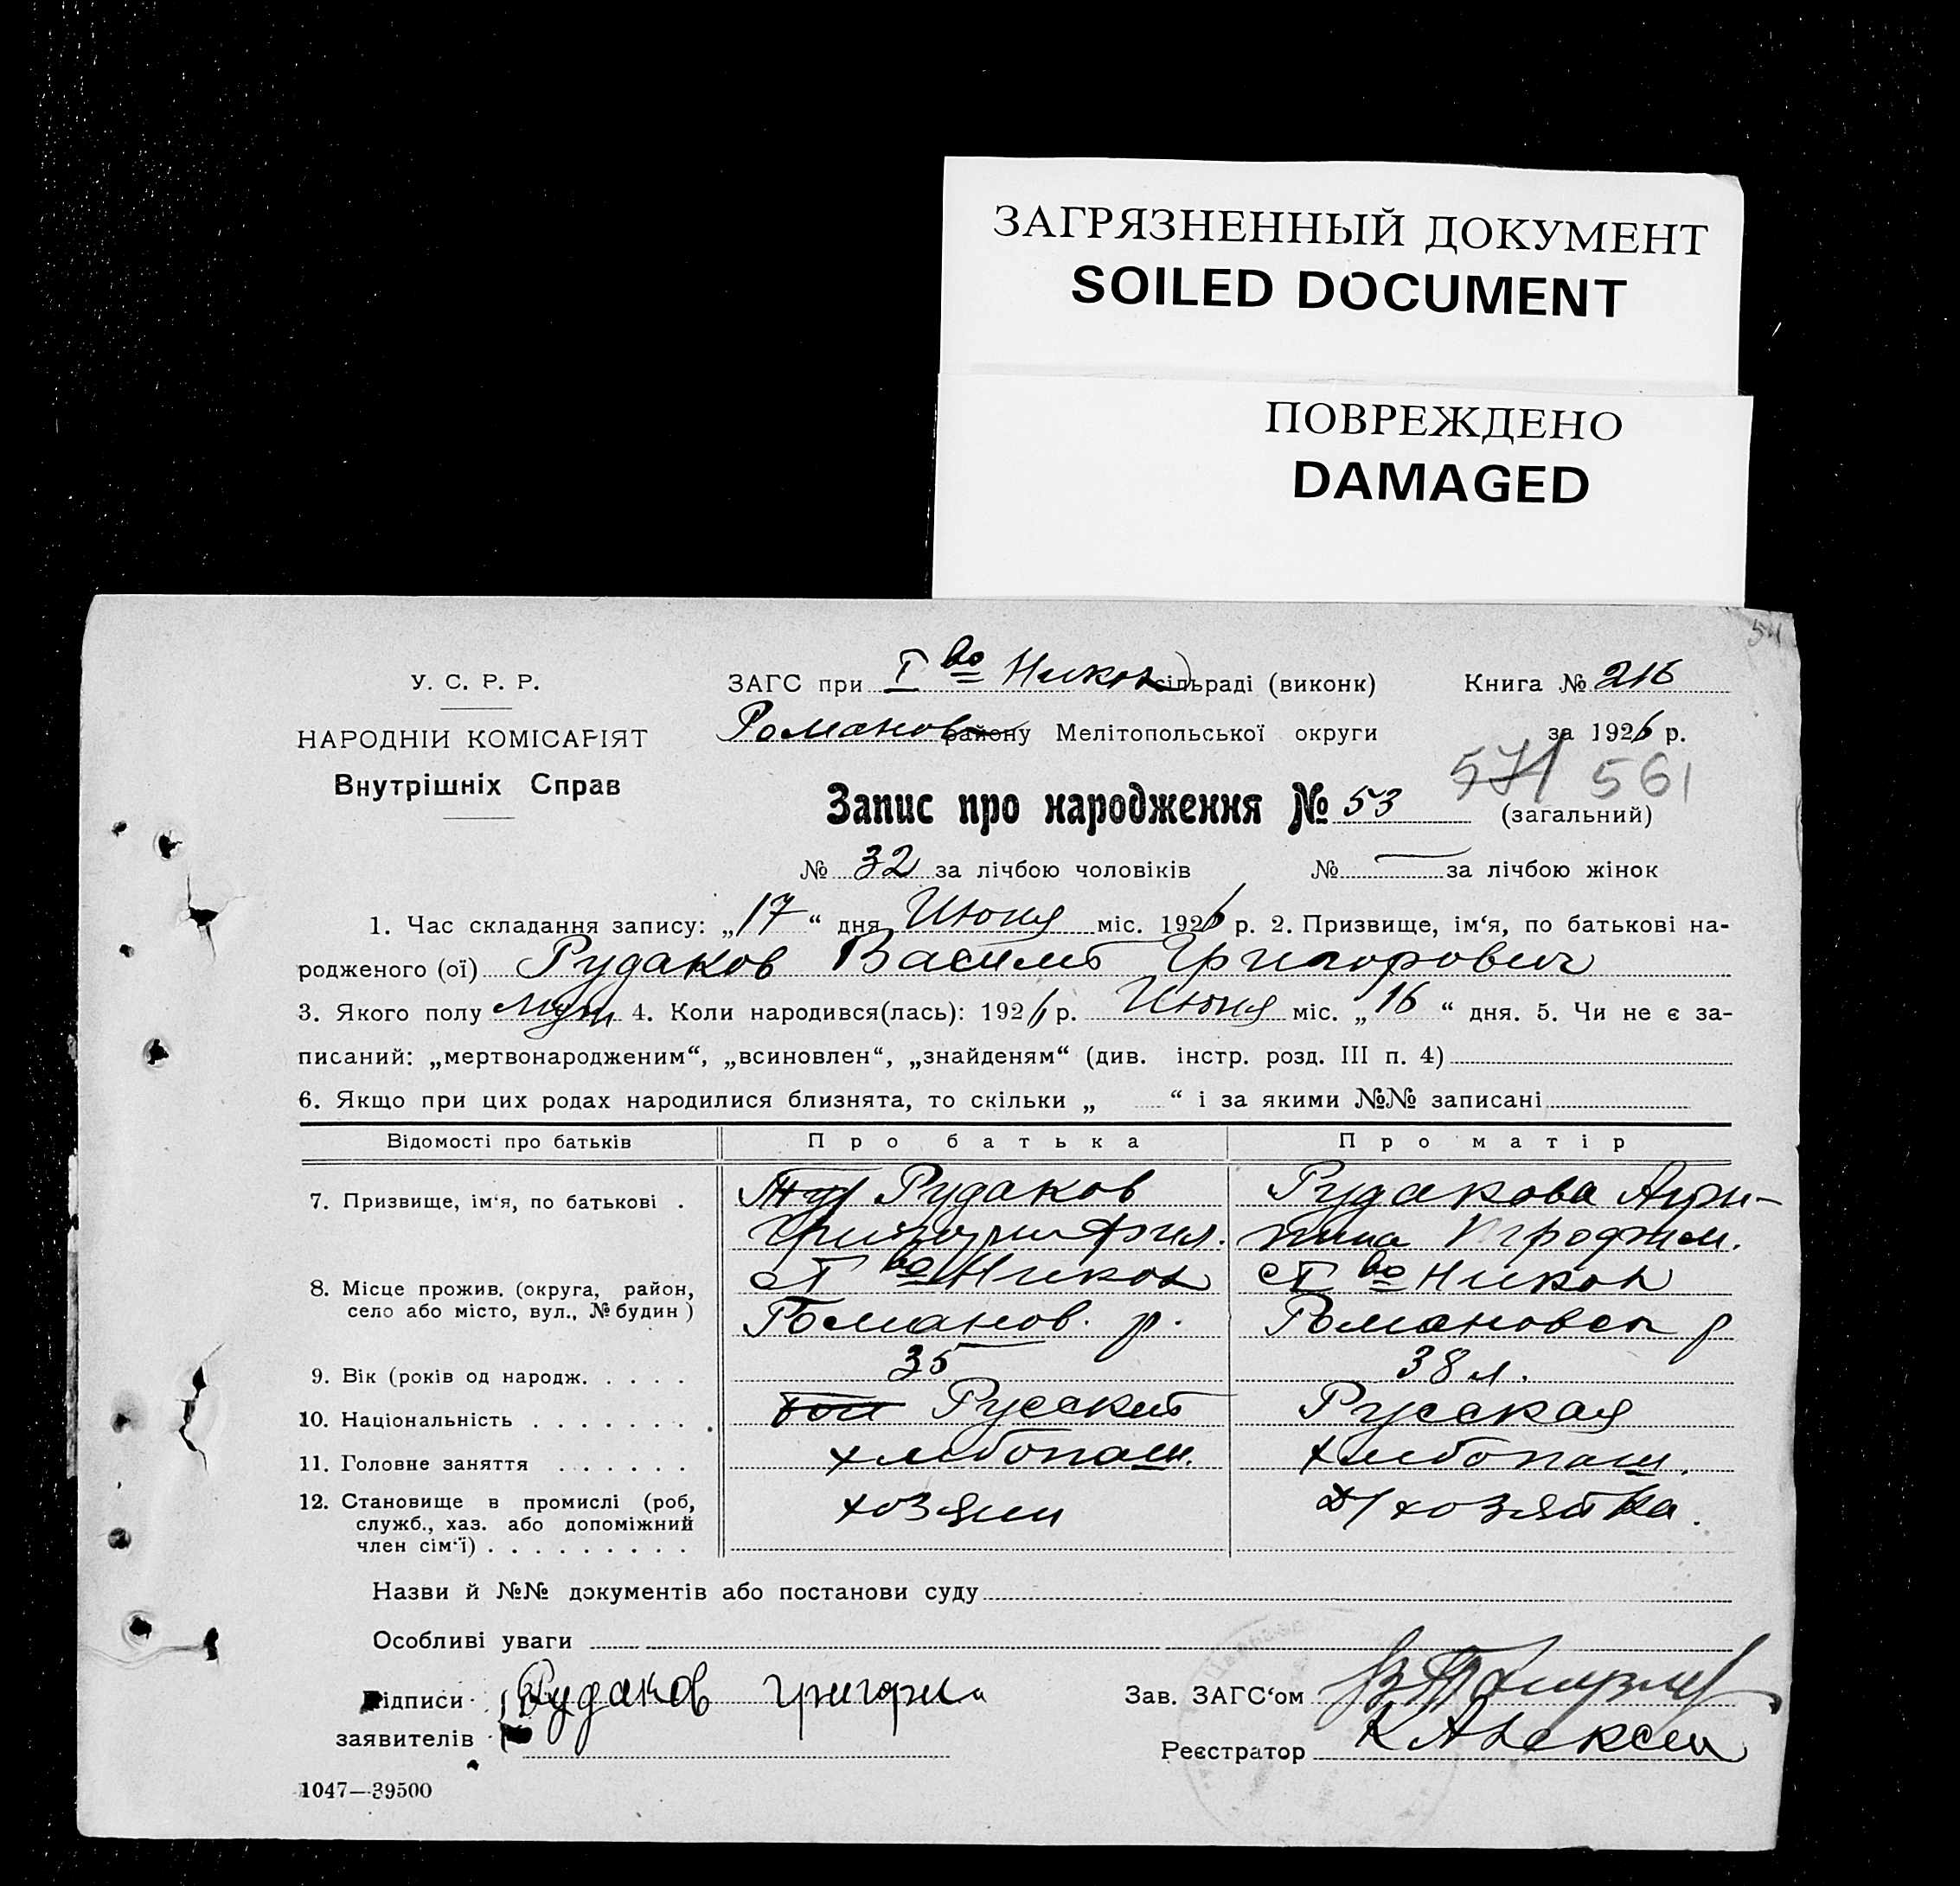 ЗАГРЯЗНЕННЫЙ ДОКУМЕНТ
SOILED DOCUMENT
ПОВРЕЖДЕНО
DAMAGED
54
У. С. Р. Р.
НАРОДНІЙ КОМІСАРІЯТ
Внутрішніх Справ
ЗАГС при I во Никол сільраді (виконк)
Книга № 216
Романов району Мелітопольської округи
за 1926 р.
571 561
Запис про народження № 53 (загальний)
№ 32 за лічбою чоловіків № — за лічбою жінок
1. Час складання запису: „17“ дня Июня міс. 1926 р. 2. Призвище, ім‘я, по батькові на-
родженого (ої) Рудаков Василий Григорович
3. Якого полу муж 4. Коли народився(лась): 1926 р. Июня міс. „16“ дня. 5. Чи не є за-
писаний: „мертвонародженим“, „всиновлен“, „знайденям“ (див. інстр. розд. III п. 4)
6. Якщо при цих родах народилися близнята, то скільки „ “ і за якими №№ записані
Відомості про батьків Про батька Про матір
7. Призвище, ім‘я, по батькові . Рудаков Рудакова
8. Місце прожив. (округа, район, село або місто, вул., № будин) I во Никол I во Никол
Романов. р. Романовск р
9. Вік (років од народж. . . . . 35 38 л.
10. Національність . . . . . . . Русский Русская
11. Головне заняття . . . . . . хлебопаш. хлебопаш.
12. Становище в промислі (роб, хозяин д/хозяйка.
служб., хаз. або допоміжний
член сім‘ї) . . . . . . . . .
Назви й №№ документів або постанови суду
Особливі уваги
Підписи Рудаков
заявителів
Зав. ЗАГС‘ом
Реєстратор
1047—39500